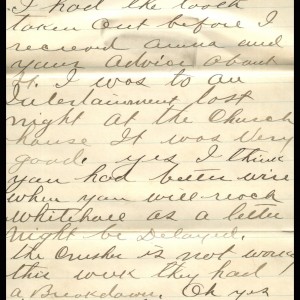 I had the tooth
taken out before I
recieved anna and
your advice about
it. I was to an
Entertainment last
night at the Church
house It was Very
good. yes I think
you had been wire
when you will reach
whitehall as a letter
might be Delayed.
the Crusher is not work
this week they had
a Breakdown. Oh yes